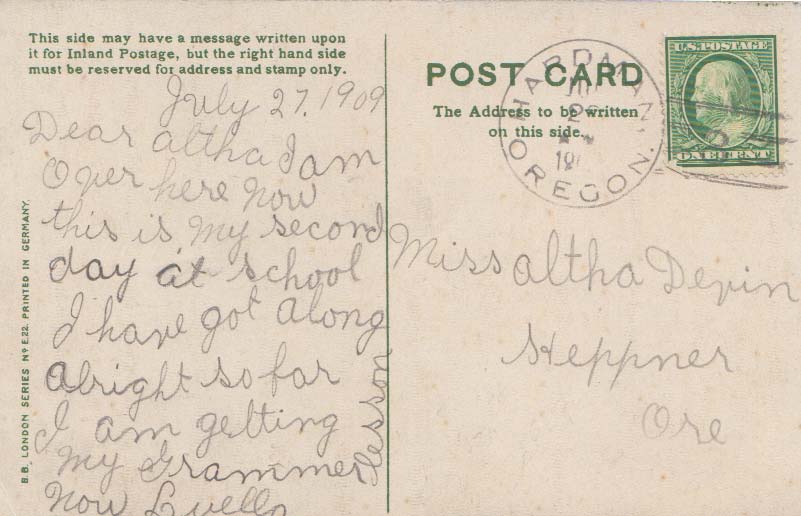 This side may have a message written upon
it for Inland Postage, but the right hand side
must be reserved for address and stamp only.
July 27, 1909
Dear altha I am
Over here now
this is my second
day at school
I have got along
alright so far
I am getting
my Grammer lesson
now Luella
B.B. LONDON SERIES Nº E.22. PRINTED IN GERMANY.
POST CARD
The Address to be written
on this side.
HARDMAN,
OREGON.
U.S. POSTAGE
ONE CENT
Miss altha Devin
Heppner
Ore